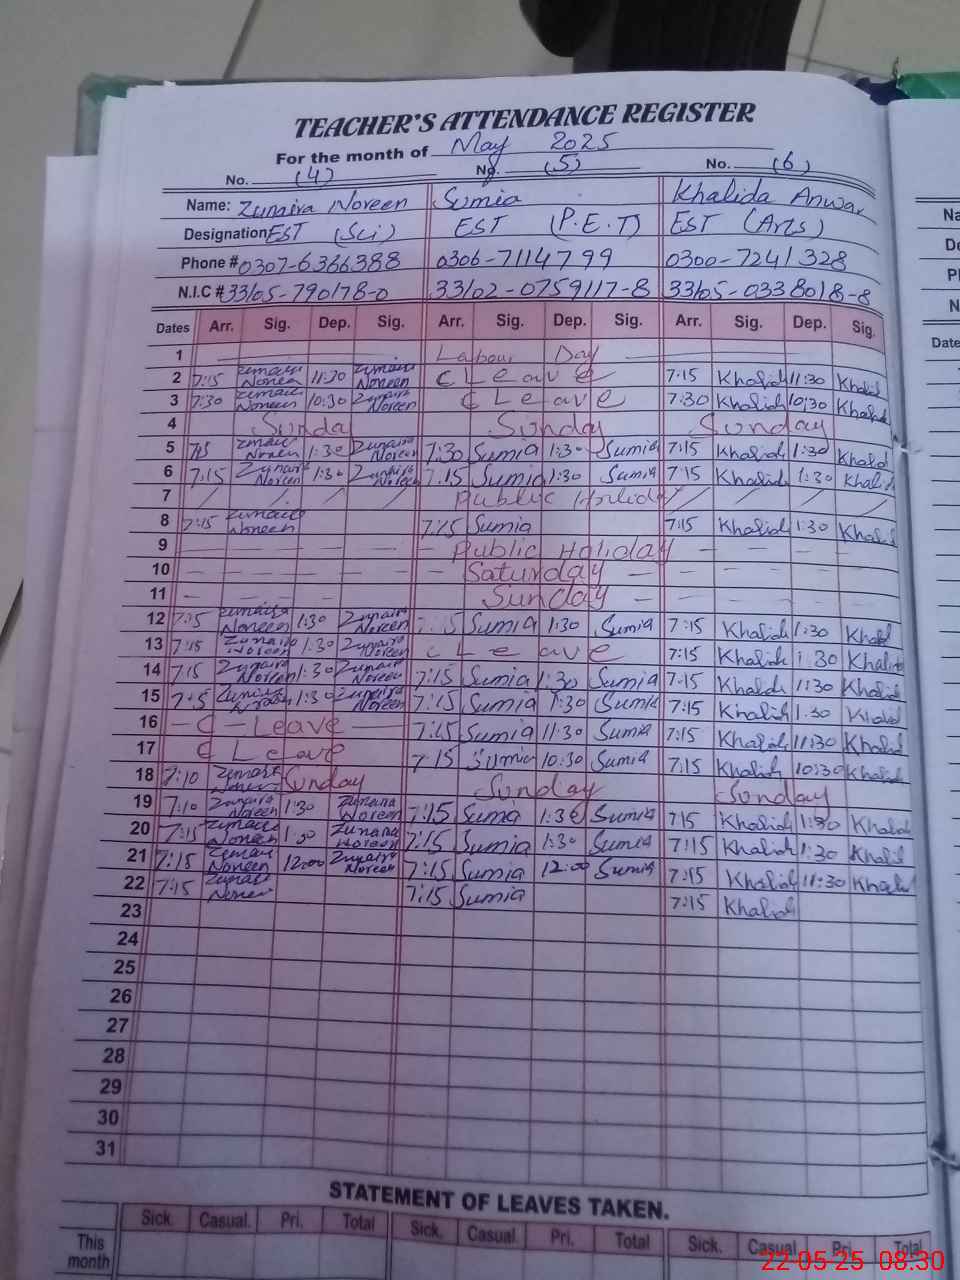 TEACHER'S ATTENDANCE REGISTER
For the month of May 2025
No. (4) No. (5) No. (6)
Name: Zunaira Noreen Sumia Khalida Anwar
Designation EST (Sci) EST (P.E.T) EST (Arts)
Phone # 0307-6366388 0306-7114799 0300-7241328
N.I.C # 33105-790178-0 33102-0759117-8 33105-0338018-8
Dates Arr. Sig. Dep. Sig. Arr. Sig. Dep. Sig. Arr. Sig. Dep. Sig.
1 Labour Day
2 7:15 Zunaira Noreen 11:30 Zunaira Noreen C Leave 7:15 Khalid 11:30 Khalid
3 7:30 Zunaira Noreen 10:30 Zunaira Noreen C Leave 7:30 Khalid 10:30 Khalid
4 Sunday Sunday Sunday
5 7:15 Zunaira Noreen 1:30 Zunaira Noreen 7:30 Sumia 1:30 Sumia 7:15 Khalid 1:30 Khalid
6 7:15 Zunaira Noreen 1:30 Zunaira Noreen 7:15 Sumia 1:30 Sumia 7:15 Khalid 1:30 Khalid
7 Public Holiday
8 7:15 Zunaira Noreen 7:15 Sumia 7:15 Khalid 1:30 Khalid
9 Public Holiday
10 Saturday
11 Sunday
12 7:15 Zunaira Noreen 1:30 Zunaira Noreen Sumia 1:30 Sumia 7:15 Khalid 1:30 Khalid
13 7:15 Zunaira Noreen 1:30 Zunaira Noreen C Leave 7:15 Khalid 1:30 Khalid
14 7:15 Zunaira Noreen 1:30 Zunaira Noreen 7:15 Sumia 1:30 Sumia 7:15 Khalid 11:30 Khalid
15 Zunaira Noreen 1:30 Zunaira Noreen 7:15 Sumia 1:30 Sumia 7:15 Khalid 1:30 Khalid
16 C-Leave 7:15 Sumia 11:30 Sumia 7:15 Khalid 11:30 Khalid
17 C Leave 7:15 Sumia 10:30 Sumia 7:15 Khalid 10:30 Khalid
18 7:10 Zunaira Noreen Sunday Sunday Sunday
19 7:10 Zunaira Noreen 1:30 Zunaira Noreen 7:15 Sumia 1:30 Sumia 7:15 Khalid 1:30 Khalid
20 7:15 Zunaira Noreen 1:30 Zunaira Noreen 7:15 Sumia 1:30 Sumia 7:15 Khalid 1:30 Khalid
21 7:15 Zunaira Noreen 12:00 Zunaira Noreen 7:15 Sumia 12:00 Sumia 7:15 Khalid 11:30 Khalid
22 7:15 Zunaira Noreen 7:15 Sumia 7:15 Khalid
23
24
25
26
27
28
29
30
31
STATEMENT OF LEAVES TAKEN.
Sick. Casual. Pri. Total Sick. Casual. Pri. Total Sick. Casual Pri. Total
This month
Na
De
Ph
N.
Date
22-05-25 08:30